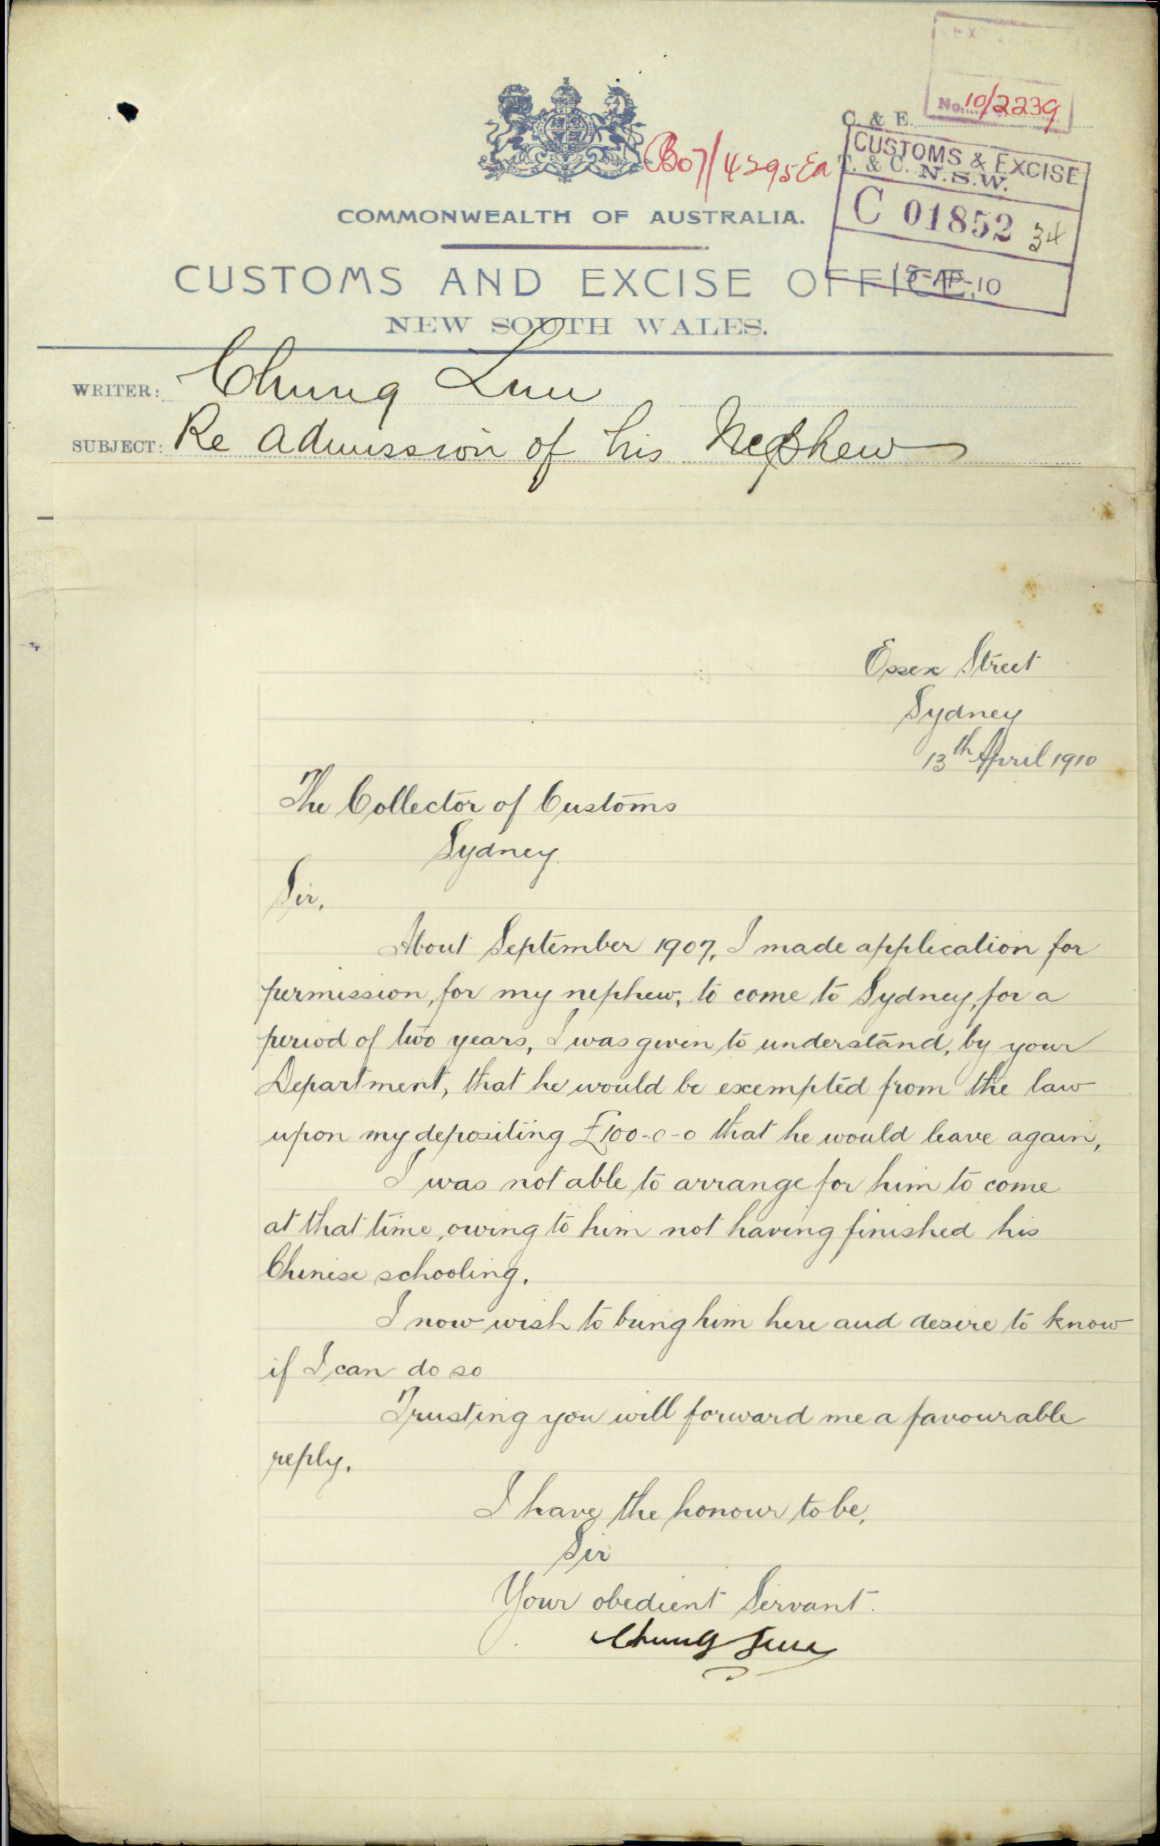 No. 10/2239
C. & E.
B07/4295Ea
T. & C.
CUSTOMS & EXCISE
N.S.W.
C 01852 34
18-AP-10
COMMONWEALTH OF AUSTRALIA.
CUSTOMS AND EXCISE OFFICE,
NEW SOUTH WALES.
WRITER: Chung Luu
SUBJECT: Re admission of his Nephew
Essex Street
Sydney
13th April 1910
The Collector of Customs
Sydney
Sir,
About September 1907, I made application for
permission, for my nephew, to come to Sydney, for a
period of two years, I was given to understand, by your
Department, that he would be exempted from the law
upon my depositing £100-0-0 that he would leave again,
I was not able to arrange for him to come
at that time, owing to him not having finished his
Chinese schooling.
I now wish to bring him here and desire to know
if I can do so
Trusting you will forward me a favourable
reply.
I have the honour to be,
Sir
Your obedient Servant.
Chung Luu